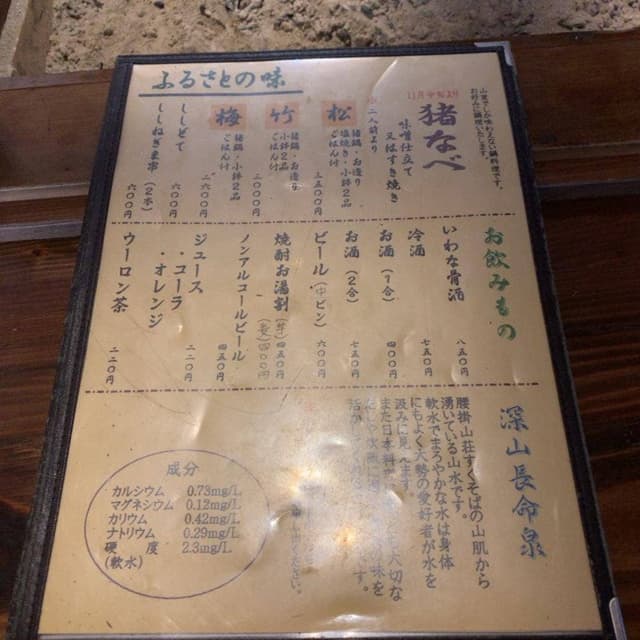 ふるさとの味
猪なべ
味噌仕立て
又はすき焼き
二人前より
松
猪鍋・お造り
塩焼き・小鉢2品
ごはん付
竹
猪鍋・お造り
小鉢2品
ごはん付
梅
猪鍋・小鉢2品
ごはん付
二六〇〇円
ししどて
六〇〇円
ししねぎま串
(2本)
六〇〇円
お飲みもの
いわな骨酒
八五〇円
冷酒
七五〇円
お酒(1合)
四〇〇円
お酒(2合)
七五〇円
ビール(中ビン)
六〇〇円
焼酎お湯割
四五〇円
ノンアルコールビール
四五〇円
ジュース
・コーラ
・オレンジ
二二〇円
ウーロン茶
二二〇円
深山長命泉
腰掛山荘すぐそばの山肌から
湧いている山水です。
軟水でまろやかな水は身体
にもよく大勢の愛好者が水を
汲みに見えます。
成分
カルシウム 0.73mg/L
マグネシウム 0.12mg/L
カリウム 0.42mg/L
ナトリウム 0.29mg/L
硬 度 2.3mg/L
(軟水)